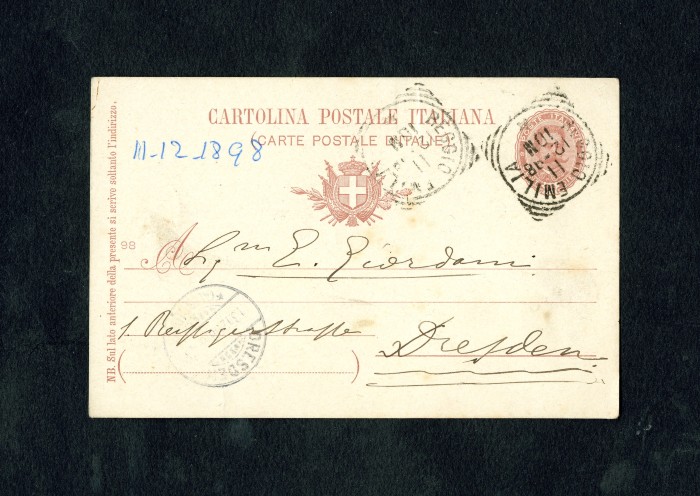 CARTOLINA POSTALE ITALIANA
(CARTE POSTALE D'ITALIE)
11-12-1898
REGGIO EMILIA
REGGIO EMILIA
98
A Sig.m E. Giordani
DRESDEN
Dresden
N.B. Sul lato anteriore della presente si scrive soltanto l'indirizzo.